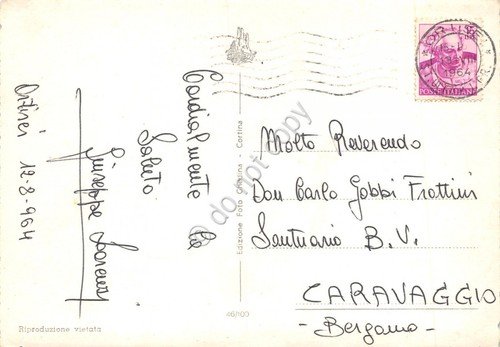 Cordialmente La
Saluto
Giuseppe Lorenzi
Ortisei 12-8-964
Edizione Foto Ghedina - Cortina
46/103
Riproduzione vietata
ORTISEI
1964
POSTE ITALIANE
Molto Reverendo
Don Carlo Gobbi Frattini
Santuario B. V.
CARAVAGGIO
- Bergamo -
do not copy